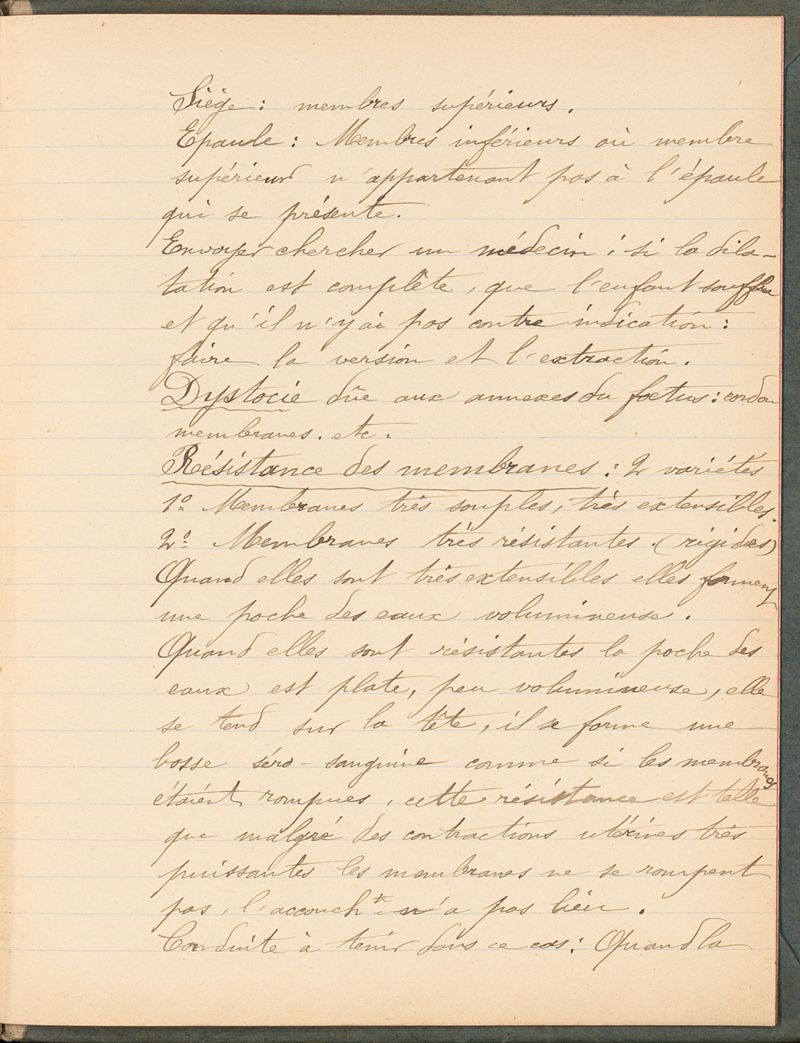 Siège : membres supérieurs.
Epaule : Membres inférieurs ou membre
supérieur n'appartenant pas à l'épaule
qui se présente.
Envoyer chercher un médecin ; si la dila-
tation est complète, que l'enfant souffre
et qu'il n'y ai pas contre indication :
faire la version et l'extraction.
Dystocie dûe aux annexes du foetus : cordon
membranes. etc.
Résistance des membranes : 2 variétés
1º Membranes très souples, très extensibles.
2º Membranes très résistantes. (rigides)
Quand elles sont très extensibles elles forment
une poche des eaux volumineuse.
Quand elles sont résistantes la poche des
eaux est plate, peu volumineuse, elle
se tend sur la tête, il se forme une
bosse séro-sanguine comme si les membranes
étaient rompues, cette résistance est telle
que malgré des contractions utérines très
puissantes les membranes ne se rompent
pas, l'accouch.t n'a pas lieu.
Conduite à tenir dans ce cas : Quand la